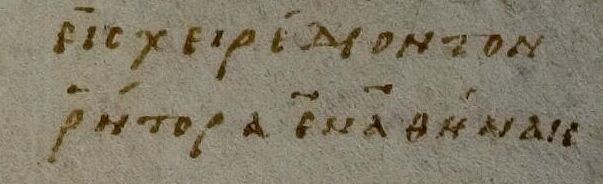 εἰς χειρέμοντον
ῥήτορα ἐν ἀθήναις